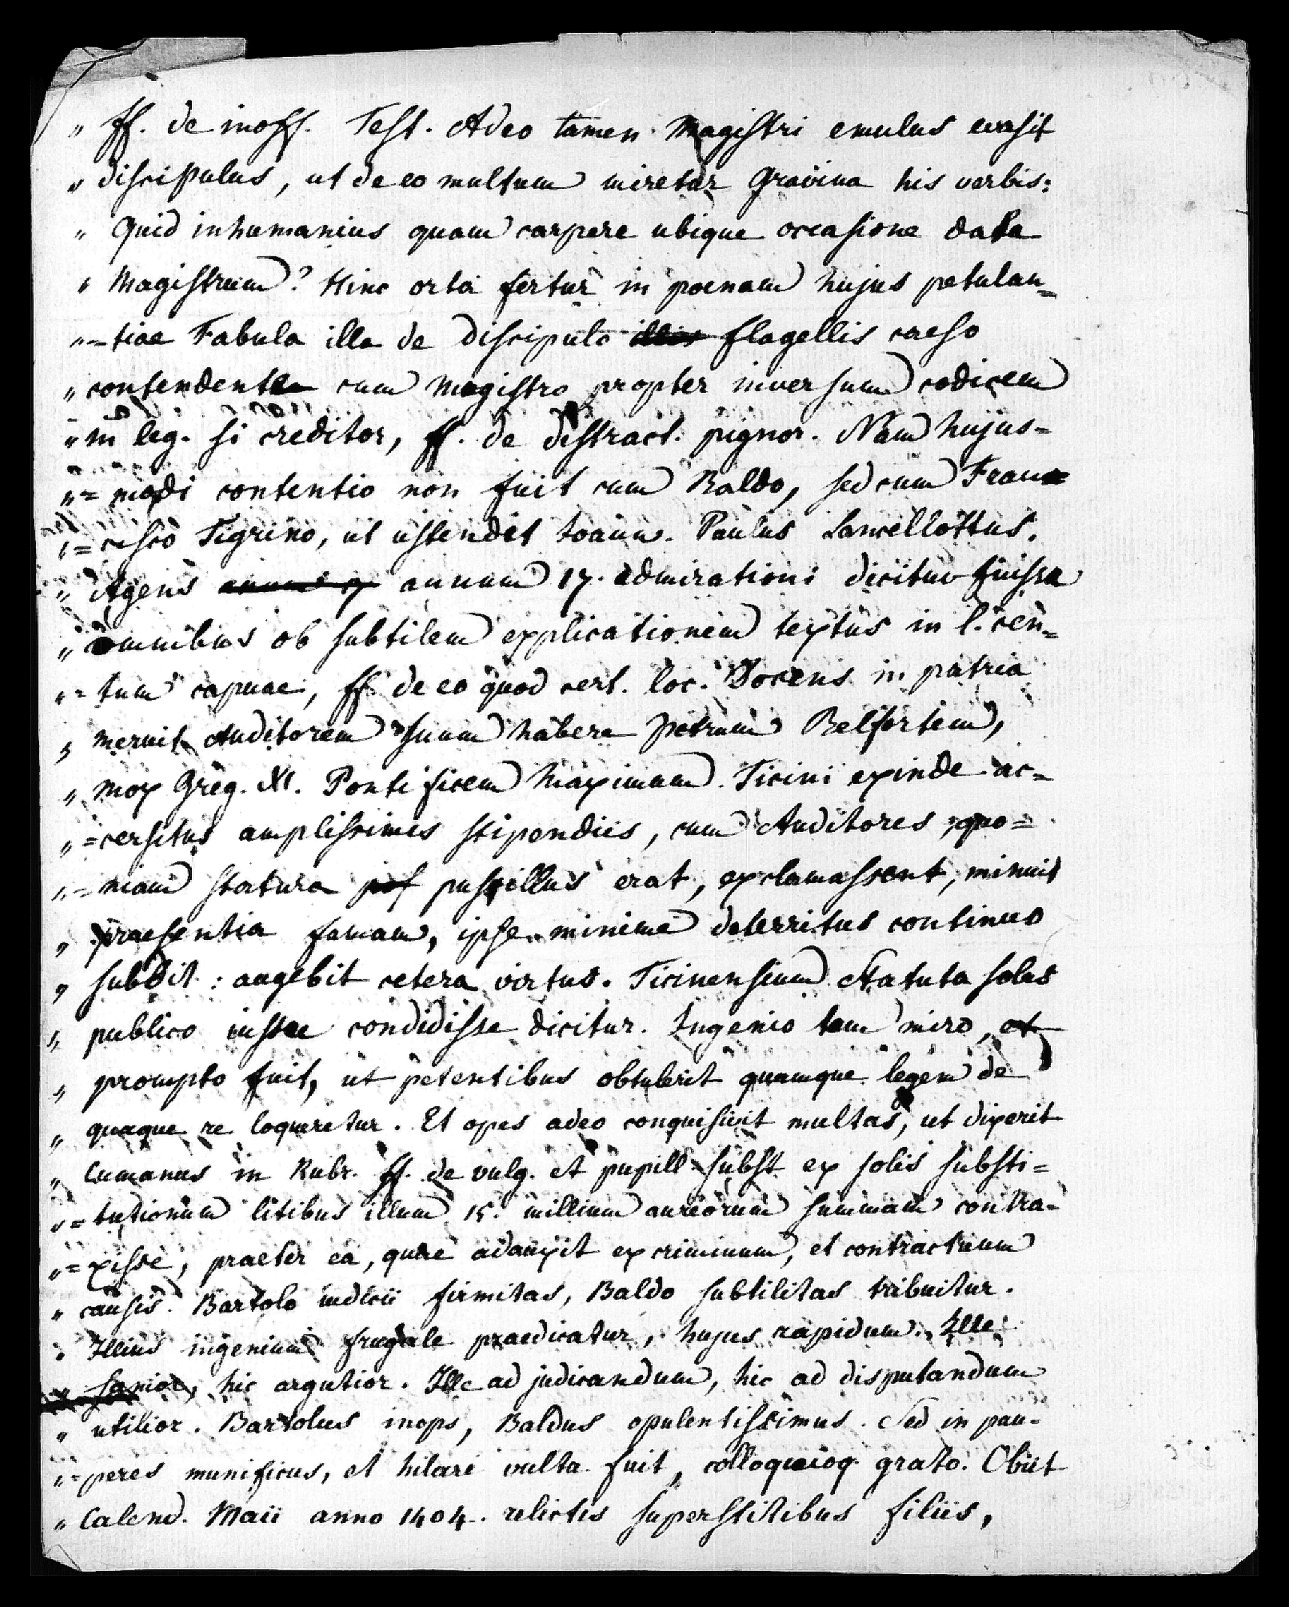 " ff. de inoff. Test. Adeo tamen Magistri emulus evasit
" discipulus, ut de eo multum miretur Gravina his verbis:
" Quid inhumanius quam carpere ubique occasione data
" Magistrum? Hinc orta fertur in poenam hujus petulan=
" =tiae Fabula illa de discipulo flagellis caeso
" contendente cum Magistro propter inversum codicem
" in leg. si creditor, ff. de distract. pignor. Nam hujus=
" =modi contentio non fuit cum Baldo, sed cum Fran=
" =cisco Tigrino, ut ostendit Joann. Paulus Lancellottus.
" Agens annum 17. admirationi dicitur fuisse
" omnibus ob subtilem explicationem textus in l. cen=
" =tum capuae, ff. de eo quod cert. loc. Docens in patria
" meruit Auditorem suum habere Petrum Belfortem,
" mox Greg. XI. Pontificem Maximum. Ticini exinde ac=
" =cersitus amplissimis stipendiis, cum Auditores, quo=
" =niam statura pusillus erat, exclamassent, minuit
" praesentia famam, ipse minime deterritus continuo
" subdit: augebit cetera virtus. Ticinensium Statuta solus
" publico jussu condidisse dicitur. Ingenio tam miro, et
" prompto fuit, ut petentibus obtulerit quamque legem de
" quaque re loqueretur. Et opes adeo conquisivit multas, ut dixerit
" Cumanus in Rubr. ff. de vulg. et pupill. subst ex solis substi=
" =tutionum litibus illum 15. millium aureorum summam contra=
" =xisse, praeter ea, quae adauxit ex criminum, et contractuum
" causis. Bartolo judicii firmitas, Baldo subtilitas tribuitur.
" Illius ingenium frugale praedicatur, hujus rapidum. Ille
" sanior, hic argutior. Ille ad judicandum, hic ad disputandum
" utilior. Bartolus inops, Baldus opulentissimus. Sed in pau=
" =peres munificus, et hilari vultu fuit, colloquioq grato. Obiit
" Calend. Maii anno 1404. relictis superstitibus filiis,